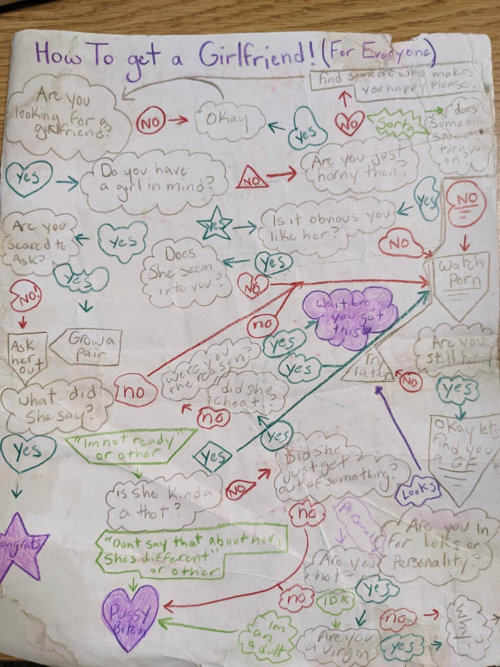 How To get a Girlfriend! (For Everyone)
Find someone who makes
you happy please.
Are you
looking for a
girlfriend?
NO
Okay
yes
NO
Sorta
does
someone
turn you
on?
yes
Do you have
a girl in mind?
NO
Are you just
horny then?
yes
NO
Are you
scared to
Ask?
yes
yes
Is it obvious you
like her?
NO
Does
She seem
into you?
yes
Watch
Porn
yes
NO
NO!
no
Wait bro
you got
this
Ask
her
out
Grow a
pair
yes
Were you
the reason?
yes
Try
later
Are you
still
NO
yes
What did
She say?
no
did she
cheat?
no
yes
yes
"Im not ready"
or other
yes
Okay lets
find you
a GF
Did She
Just get
out of something?
Is she kinda
a thot?
NO
Looks
no
Congrats
"Dont say that about her,
Shes different"
or other
Personality
Are you In
For Looks or
Personality?
Are you
hot?
yes
no
IDK
Pussy
Bitch
Im
an
adult
Are you
a virgin?
no
yes
Why?